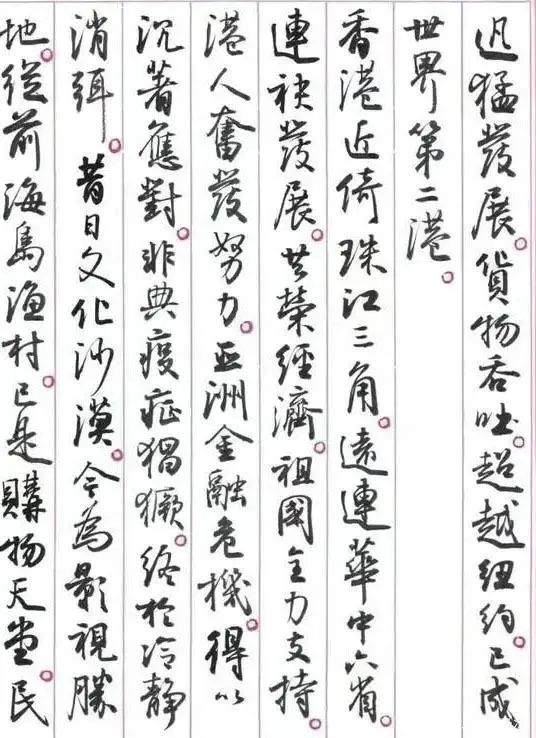 迅猛發展。貨物吞吐。超越紐約。已成
世界第二港。
香港近倚珠江三角。遠連華中六省。
連袂發展。共榮經濟。祖國全力支持。
港人奮發努力。亞洲金融危機。得以
沉著應對。非典疫症猖獗。終於冷靜
消弭。昔日文化沙漠。今為影視勝
地。從前海島漁村。已是購物天堂。民